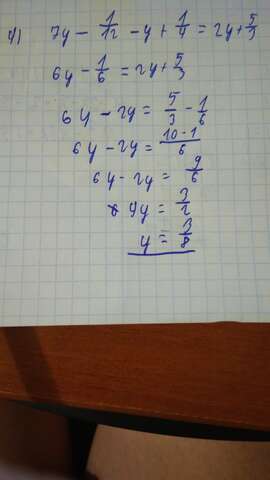 4) 7y - 1/12 - y + 1/4 = 2y + 5/3
6y - 1/6 = 2y + 5/3
6y - 2y = 5/3 - 1/6
6y - 2y = 10-1/6
6y - 2y = 9/6
4y = 3/2
y = 3/8